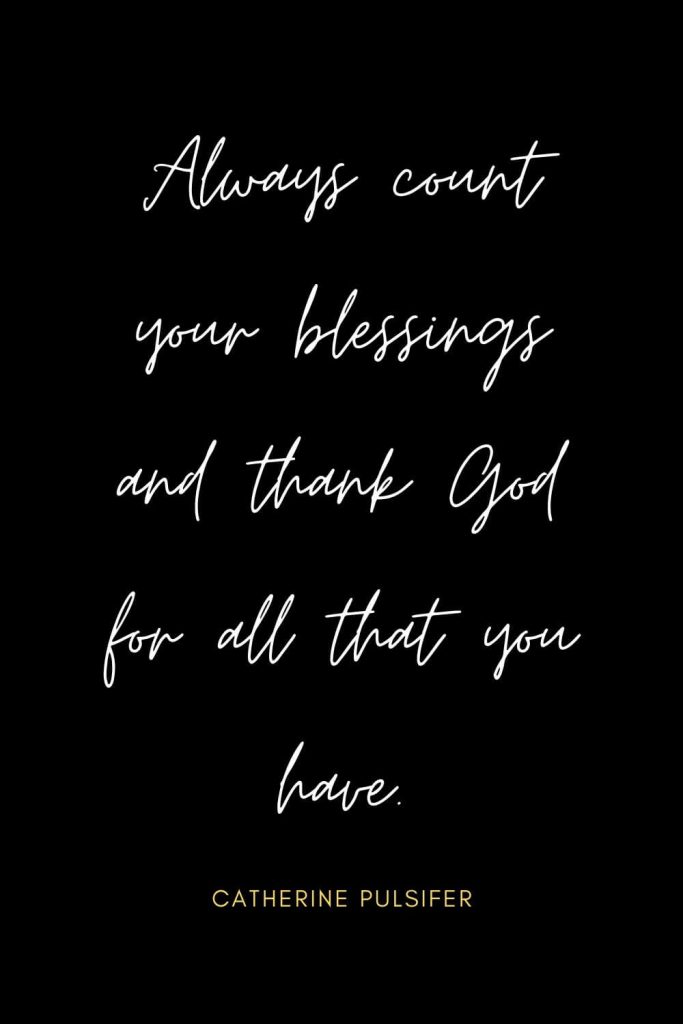 Always count
your blessings
and thank God
for all that you
have.
CATHERINE PULSIFER